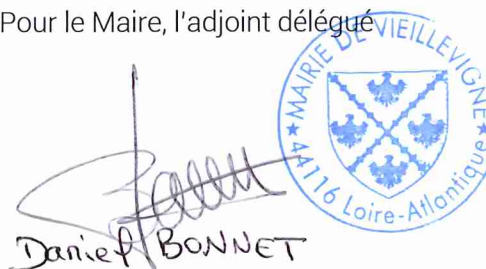 Pour le Maire, l'adjoint délégué
★ MAIRIE DE VIEILLEVIGNE ★
44116 Loire-Atlantique
Daniel BONNET